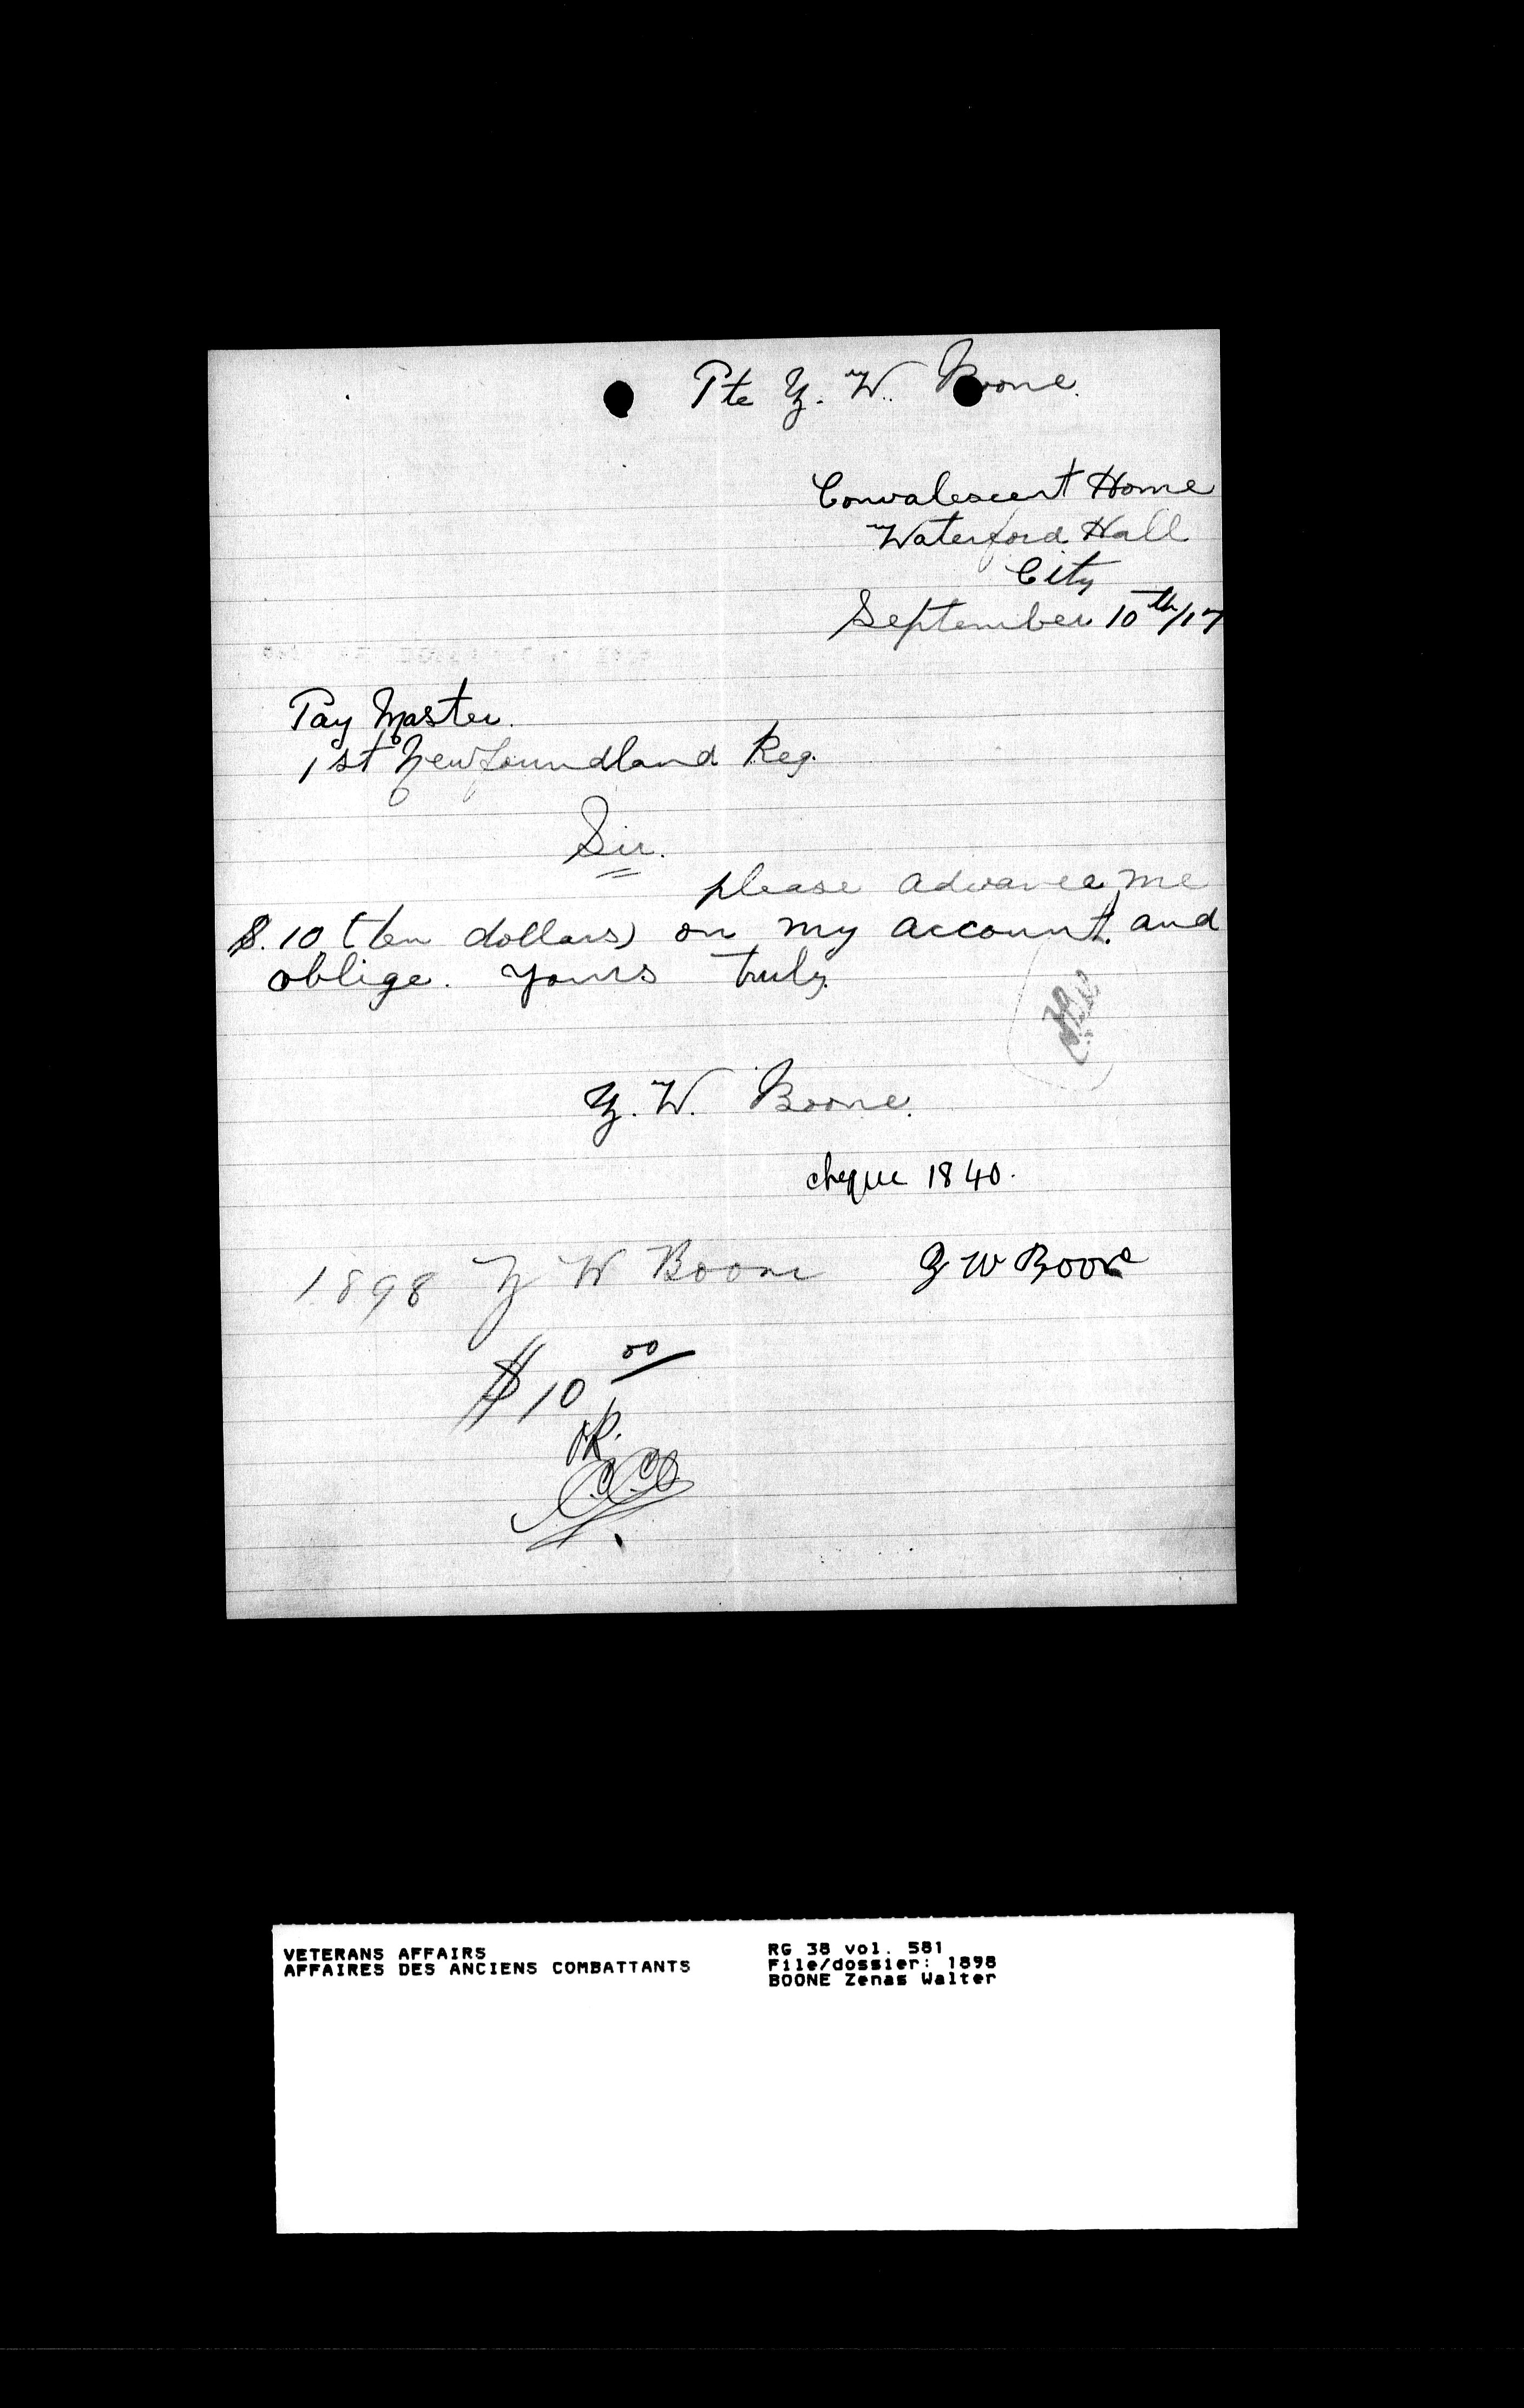 Pte Z. W. Boone.
Convalescent Home
Waterford Hall
City
September 10th/17
Pay Master.
1st Newfoundland Reg.
Sir.
please advance me
$.10 (ten dollars) on my account. and
oblige. yours truly.
Z. W. Boone.
cheque 1840.
1898 Z W Boone
Z W Boone
$10 00
OK.
VETERANS AFFAIRS
AFFAIRES DES ANCIENS COMBATTANTS
RG 38 vol. 581
File/dossier: 1898
BOONE Zenas Walter